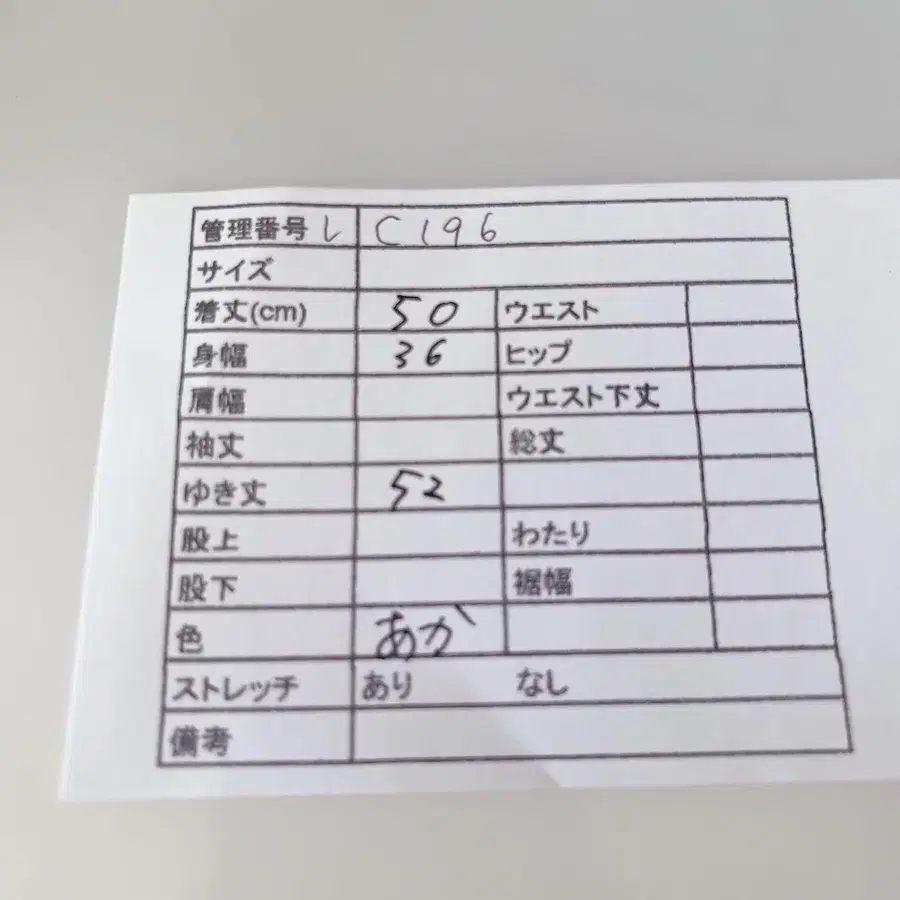 管理番号 L C196
サイズ
着丈(cm) 50 ウエスト
身幅 36 ヒップ
肩幅 ウエスト下丈
袖丈 総丈
ゆき丈 52
股上 わたり
股下 裾幅
色 あか
ストレッチ あり なし
備考